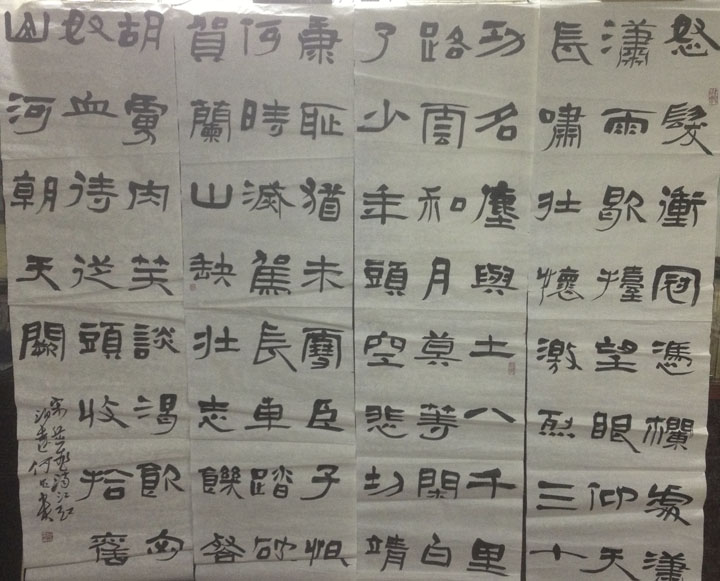 怒髮衝冠憑欄處瀟
瀟雨歇擡望眼仰天
長嘯壯懷激烈三十
功名塵與土八千里
路雲和月莫等閑白
了少年頭空悲切靖
康恥猶未雪臣子恨
何時滅駕長車踏破
賀蘭山缺壯志饑餐
胡虜肉笑談渴飲匈
奴血待從頭收拾舊
山河朝天闕
宋岳飛江紅
何書